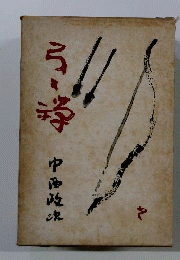 弓と禅
中西政次